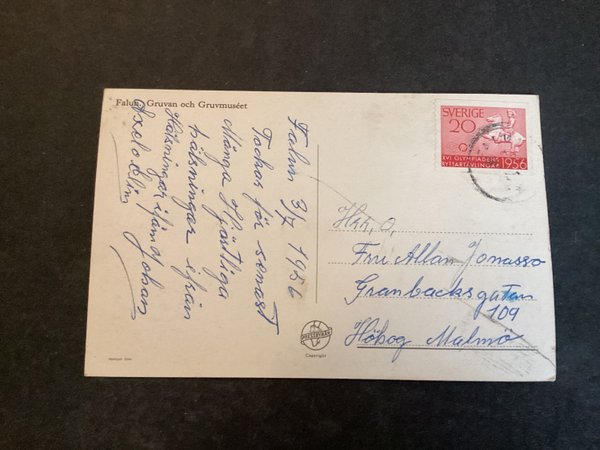 Falun, Gruvan och Gruvmuséet
Falun 3/7 1956
Tackar för senast
Många Hjärtliga
hälsningar från
Hälsningar Johan
Axel o Elin
SVERIGE
20
XVI OLYMPIADENS
RYTTARTÄVLINGAR 1956
Hrr, o,
Fru Allan Jonasso
Granbacksgatan
109
Höbog Malmö
Copyright